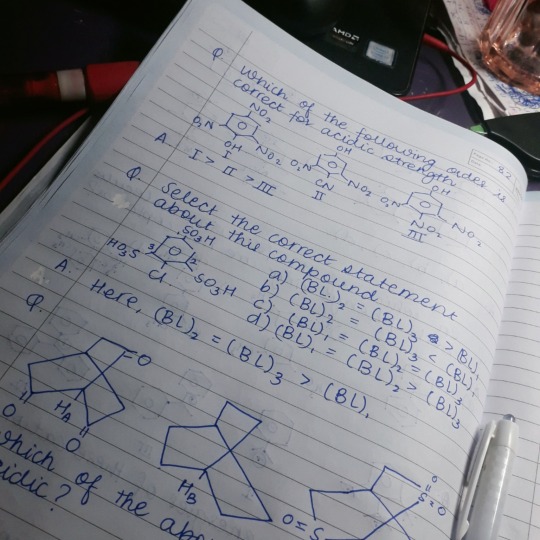 AMDA
82
Q. Which of the following order is
correct for acidic strength
NO2 OH OH
O2N NO2 O2N NO2 O2N NO2
OH CN NO2
I II III
A. I > II > III
Q. Select the correct statement
about this compound
SO3H
HO3S 3 2 SO3H
Cl
a) (BL)2 = (BL)3 > (BL)1
b) (BL)2 = (BL)3 < (BL)1
c) (BL)1 = (BL)2 = (BL)3
d) (BL)1 = (BL)2 > (BL)3
A. Here, (BL)2 = (BL)3 > (BL)1
Q.
O HA O O
HB
O=S S=O O
Which of the abo
cidic?